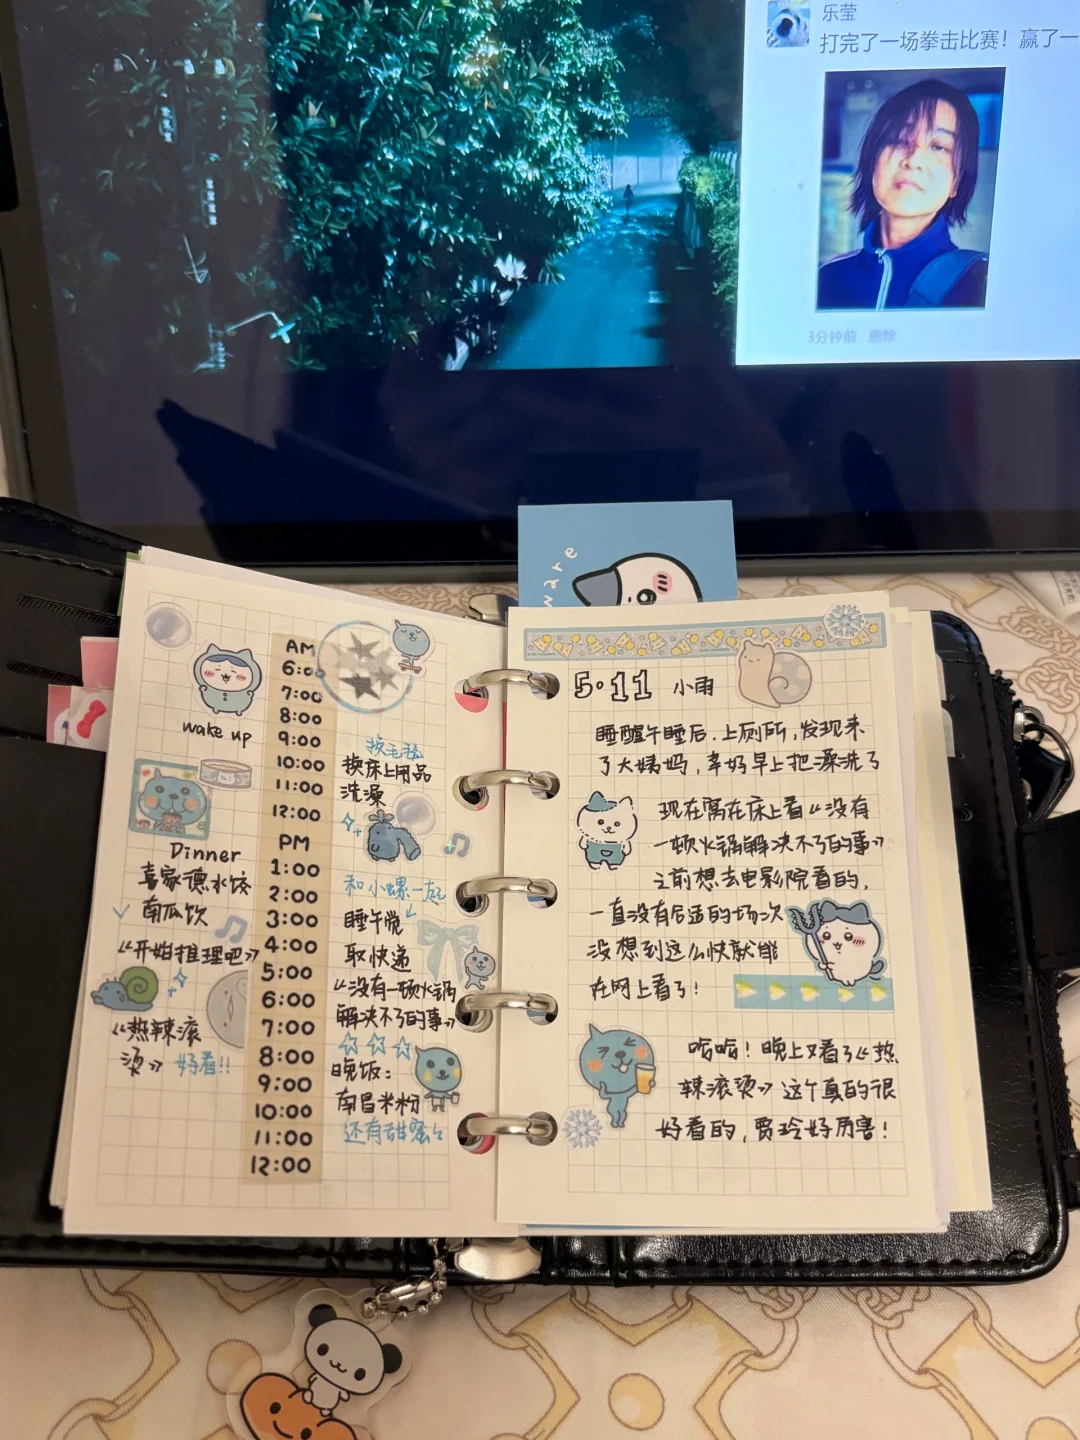 乐莹
打完了一场拳击比赛！赢了一
3分钟前 删除
ware
wake up
Dinner
喜家德水饺
✓ 南瓜饮
《开始推理吧》
《热辣滚
烫》好看!!
AM
6:00
7:00
8:00
9:00
10:00
11:00
12:00
PM
1:00
2:00
3:00
4:00
5:00
6:00
7:00
8:00
9:00
10:00
11:00
12:00
换毛毯
换床上用品
洗澡
和小螺一起
睡午觉
取快递
《没有一顿火锅
解决不了的事》
晚饭：
南昌米粉
还有甜蜜
5·11 小雨
睡醒午睡后，上厕所，发现来
了大姨妈，幸好早上把澡洗了
现在窝在床上看《没有
一顿火锅解决不了的事》
之前想去电影院看的，
一直没有合适的场次
没想到这么快就能
在网上看了！
哈哈！晚上又看了《热
辣滚烫》这个真的很
好看的，贾玲好厉害！